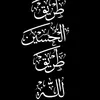 طريق
الحسين
طريق
لله